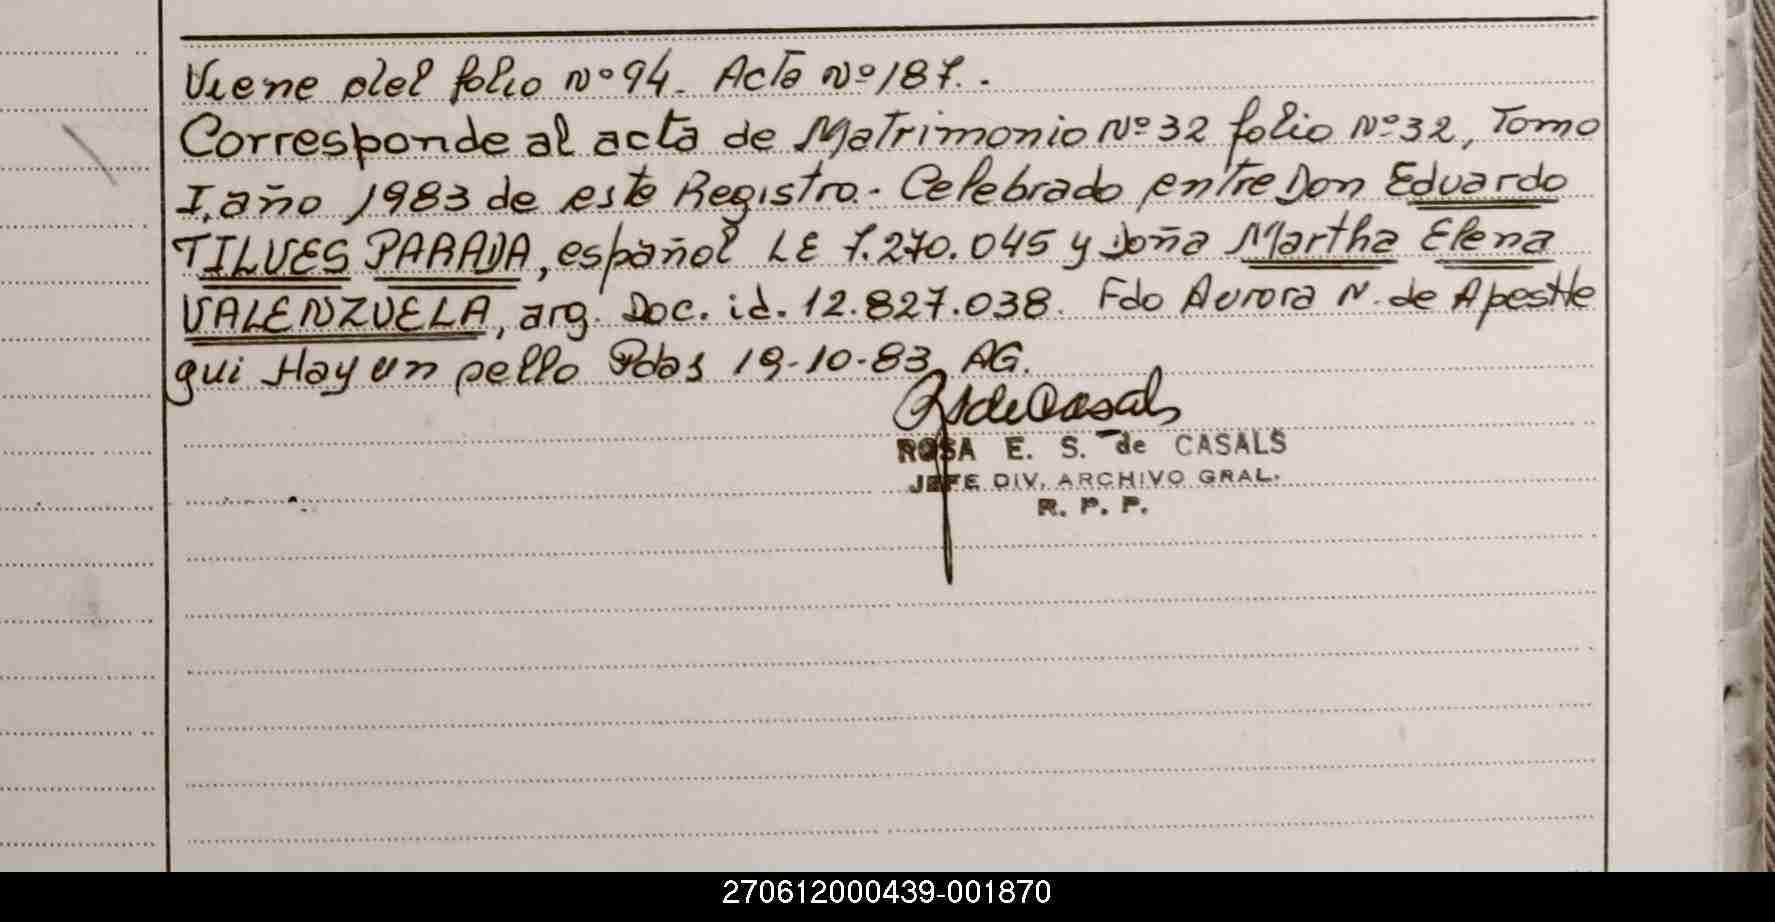 Viene del folio Nº 94. Acta Nº 187.-
Corresponde al acta de Matrimonio Nº 32 folio Nº 32, Tomo
I, año 1983 de este Registro.- Celebrado entre Don Eduardo
TILVES PARADA, español LE 7.270.045 y Doña Martha Elena
VALENZUELA, arg. Doc. id. 12.827.038. Fdo Aurora N. de Apeste
gui Hay un sello Pdas 19-10-83 AG.
RSdeCasals
ROSA E. S. de CASALS
JEFE DIV. ARCHIVO GRAL.
R. P. P.
270612000439-001870